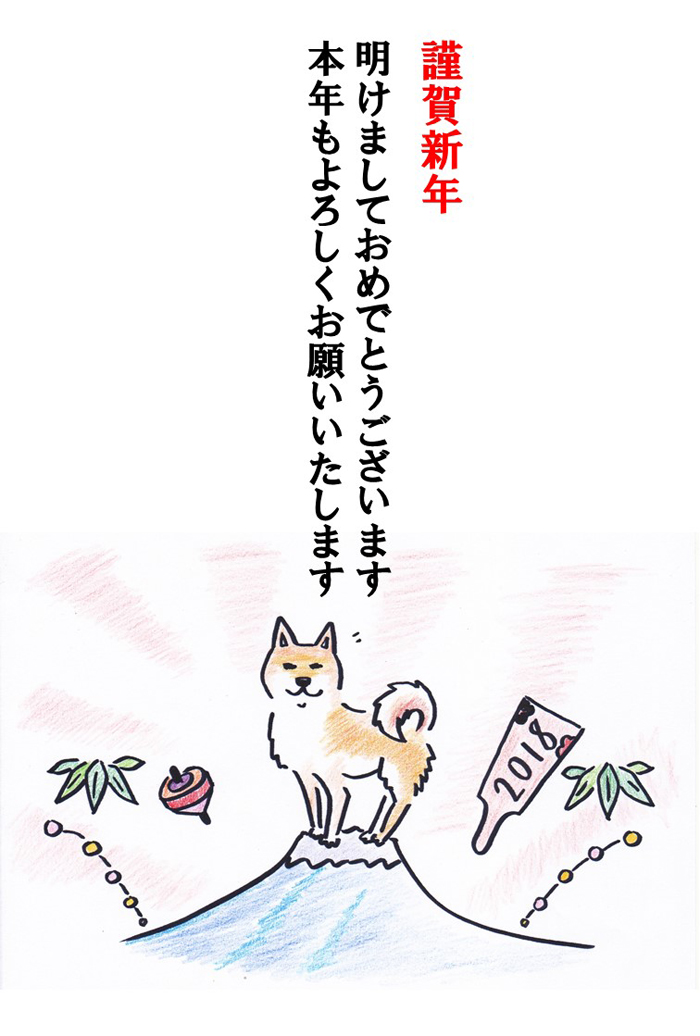 謹賀新年
明けましておめでとうございます
本年もよろしくお願いいたします
2018